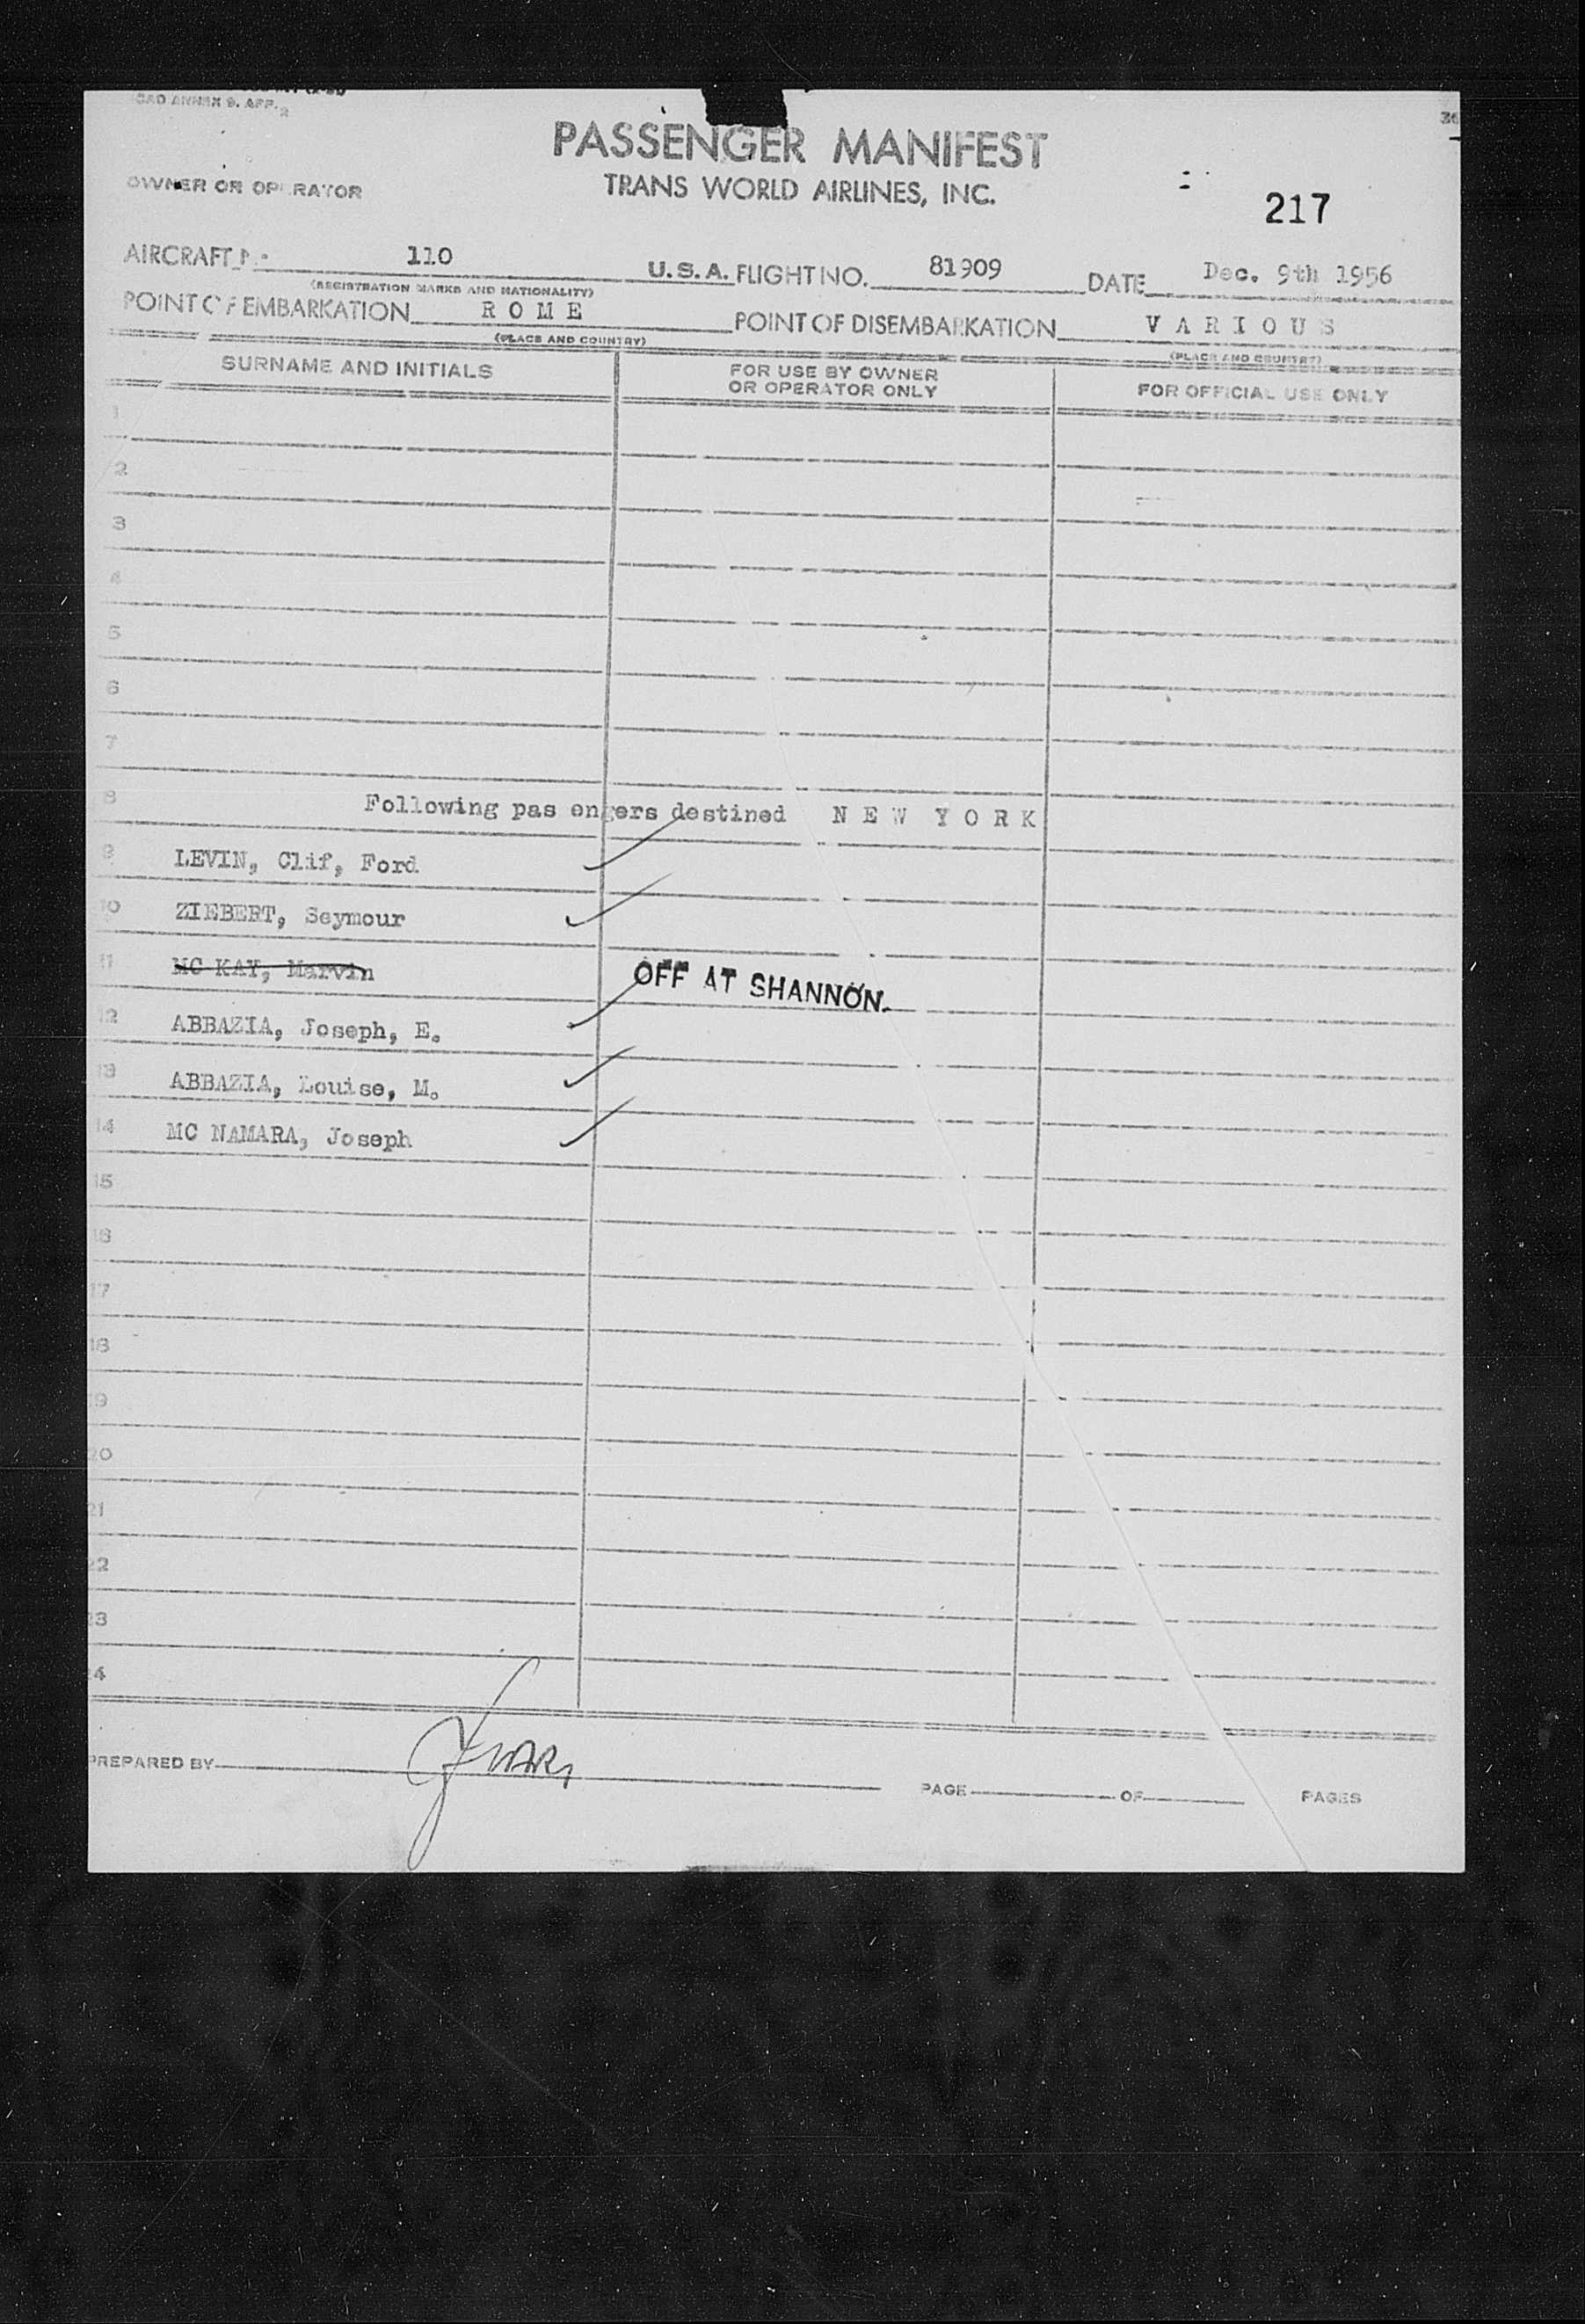 ICAO ANNEX 9. APP. 2
PASSENGER MANIFEST
OWNER OR OPERATOR
TRANS WORLD AIRLINES, INC.
217
AIRCRAFT 110
U.S.A. FLIGHT NO. 81909 DATE Dec. 9th 1956
(REGISTRATION MARKS AND NATIONALITY)
POINT OF EMBARKATION R O M E POINT OF DISEMBARKATION V A R I O U S
(PLACE AND COUNTRY) (PLACE AND COUNTRY)
SURNAME AND INITIALS FOR USE BY OWNER OR OPERATOR ONLY FOR OFFICIAL USE ONLY
1
2
3
4
5
6
7
8 Following pas engers destined N E W Y O R K
9 LEVIN, Clif, Ford
10 ZIEBERT, Seymour
11 MC KAY, Marvin OFF AT SHANNON.
12 ABBAZIA, Joseph, E.
13 ABBAZIA, Louise, M.
14 MC NAMARA, Joseph
15
16
17
18
19
20
21
22
23
24
PREPARED BY
PAGE OF PAGES